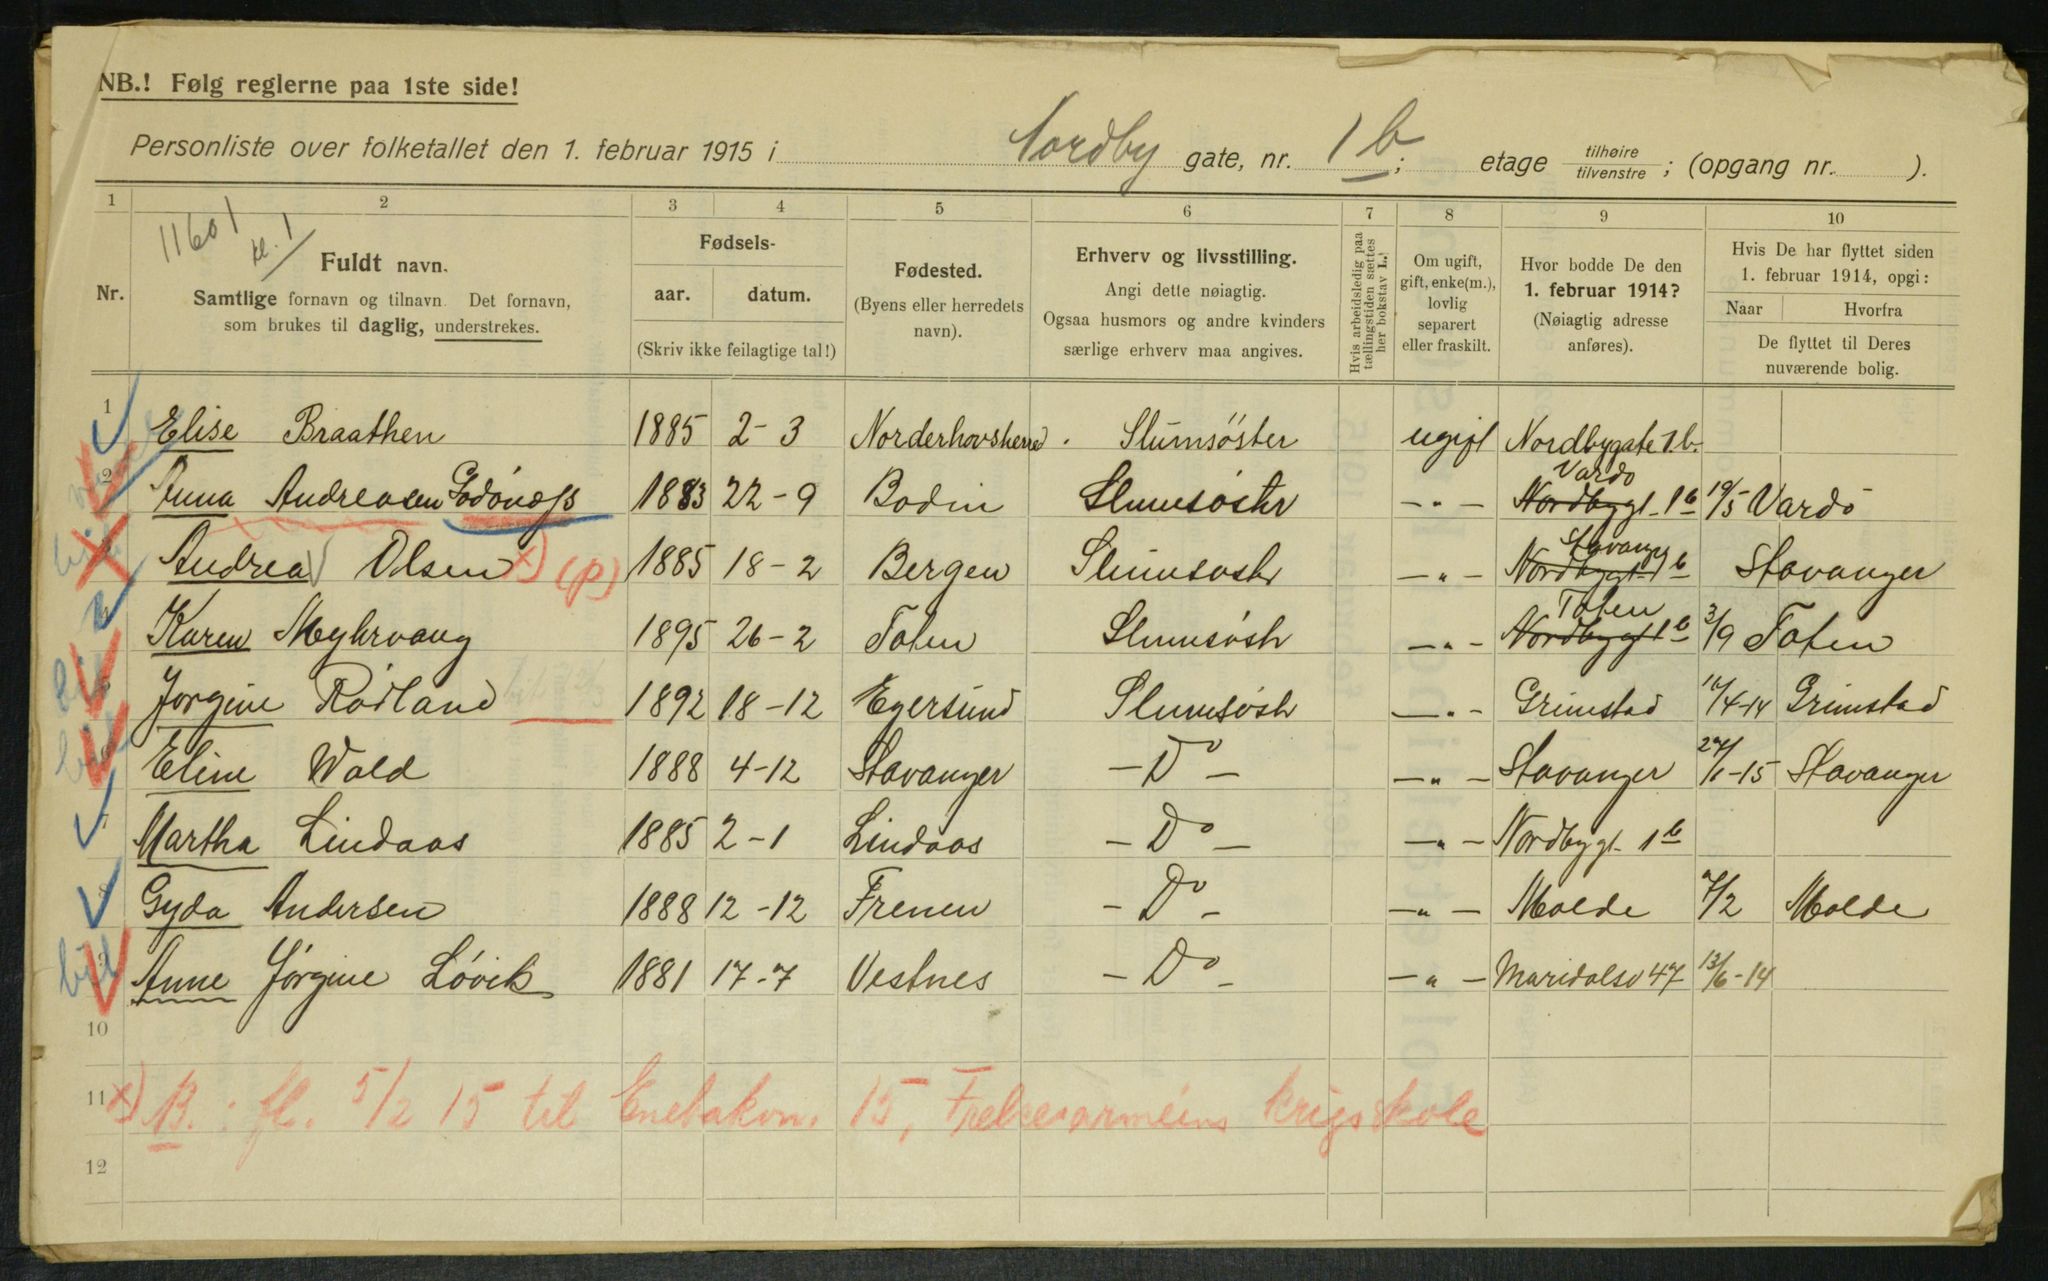 NB.! Følg reglerne paa 1ste side!
Personliste over folketallet den 1. februar 1915 i Nordby gate, nr. 1 b; etage tilhøire tilvenstre; (opgang nr. ).
1 2 3 4 5 6 7 8 9 10
11601
kl. 1
Nr.
Fuldt navn.
Samtlige fornavn og tilnavn. Det fornavn,
som brukes til daglig, understrekes.
Fødsels-
aar. datum.
(Skriv ikke feilagtige tal!)
Fødested.
(Byens eller herredets
navn).
Erhverv og livsstilling.
Angi dette nøiagtig.
Ogsaa husmors og andre kvinders
særlige erhverv maa angives.
Hvis arbeidsledig paa
tællingstiden sættes
her bokstav L.!
Om ugift,
gift, enke(m.),
lovlig
separert
eller fraskilt.
Hvor bodde De den
1. februar 1914?
(Nøiagtig adresse
anføres).
Hvis De har flyttet siden
1. februar 1914, opgi:
Naar Hvorfra
De flyttet til Deres
nuværende bolig.
1 Elise Braathen 1885 2-3 Norderhovsherred. Slumsöster ugift Nordbygate 1.b.
Vardö
2 Anna Andreasen Godönæss 1883 22-9 Bodin Slumsöstr -"- Nordbygt. 1 b 19/5 Vardö
Stavanger
Andrea Olsen x) (p) 1885 18-2 Bergen Slumsöstr -"- Nordbygt 1 b Stavanger
Toten
4 Karen Myhrvang 1895 26-2 Toten Slumsöstr -"- Nordbygt 1 b 3/9 Toten
Jørgine Rødland 1892 18-12 Egersund Slumsöstr -"- Grimstad 4-14 Grimstad
6 Eline Wold 1888 4-12 Stavanger - Do - -"- Stavanger 27/1-15 Stavanger
7 Martha Lindaas 1885 2-1 Lindaas - Do - -"- Nordbygt. 1 b
8 Gyda Andersen 1888 12-12 Frenen - Do - -"- Molde 7/2 Molde
9 Anne Jörgine Lövik 1881 17-7 Vestnes - Do - -"- Maridalsv 47 13/6-14
10
11 x) B.: fl. 5/2 15 til Enebakvn. 15, Frelsesarméens krigsskole
12